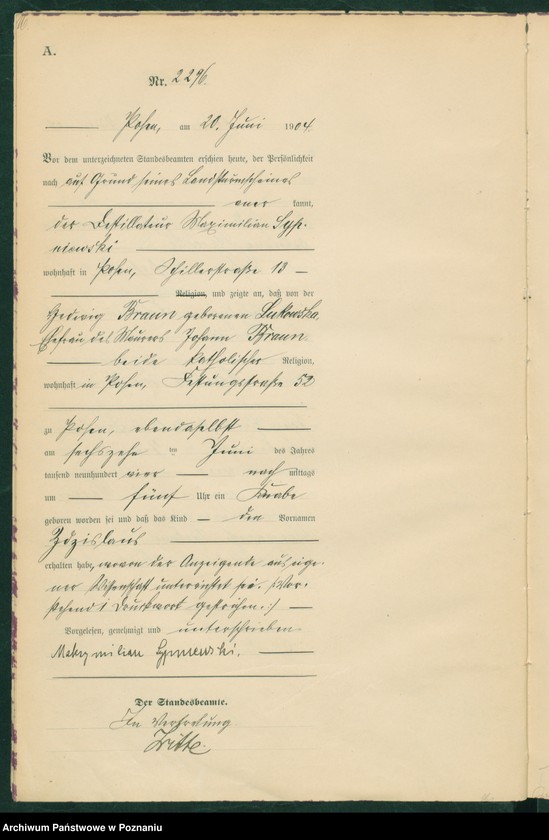 A.
Nr. 2296.
Posen, am 20. Juni 1904
Vor dem unterzeichneten Standesbeamten erschien heute, der Persönlichkeit
nach auf Grund seines Landsturmscheines
kannt,
der Destillateur Maximilian Syp-
niewski
wohnhaft in Posen, Schillerstraße 13
Religion, und zeigte an, daß von der
Hedwig Braun geborenen Lukowska,
Ehefrau des Maurers Johann Braun
beide katholischer Religion,
wohnhaft in Posen, Festungsstraße 52
zu Posen, ebendaselbst
am sechszehn ten Juni des Jahres
tausend neunhundert vier nach mittags
um fünf Uhr ein Knabe
geboren worden sei und daß das Kind den Vornamen
Zdzislaus
erhalten habe, wovon der Anzeigende aus eige-
ner Wissenschaft unterrichtet sei. (: Vor-
stehend 1 Druckwort gestrichen. :)
Vorgelesen, genehmigt und unterschrieben
Maksymilian Sypniewski.
Der Standesbeamte.
In Vertretung
Archiwum Państwowe w Poznaniu